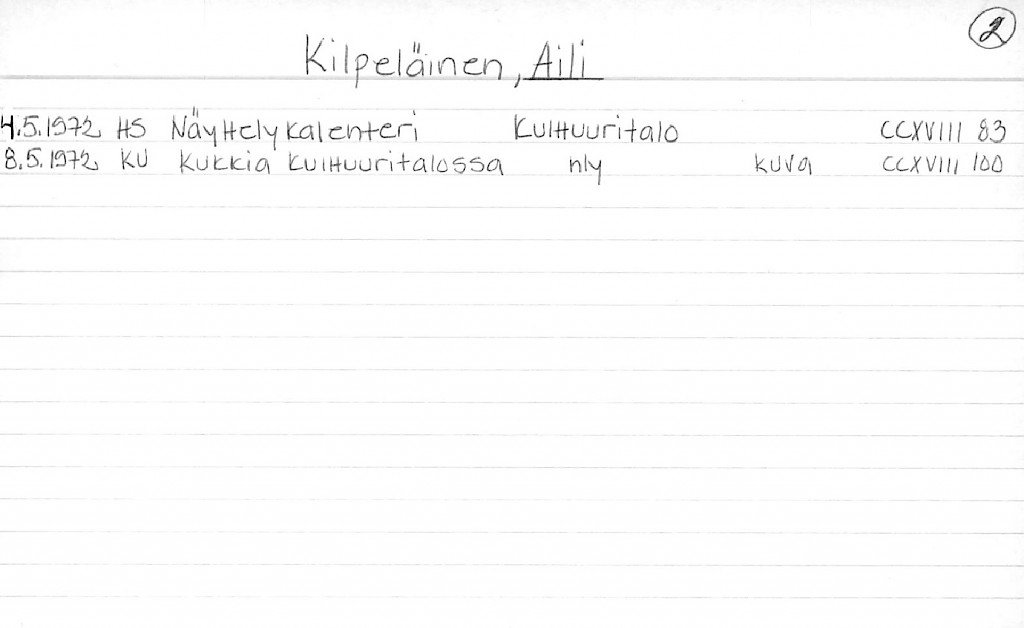 2
Kilpeläinen, Aili
4.5.1972 HS Näyttelykalenteri Kulttuuritalo CCXVIII 83
8.5.1972 KU Kukkia Kulttuuritalossa nly kuva CCXVIII 100